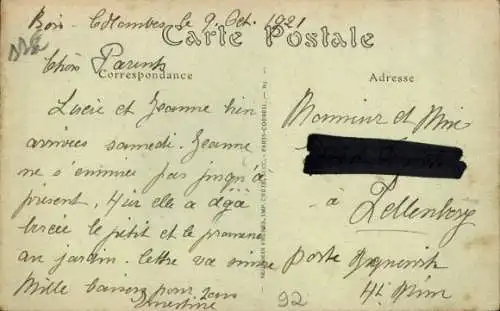 Bois-Colombes le 9. Oct. 1921
Carte Postale
Chers Parents
Correspondance
Adresse
Lucie et Jeanne bien
arrivées samedi. Jeanne
ne s'ennuie pas jusqu'à
présent. Hier elle a déjà
le petit et le promené
au jardin. lettre va suivre
Mille baisers pour tous
Ernestine
Monsieur et Mme
à
Pellenberg
poste
92